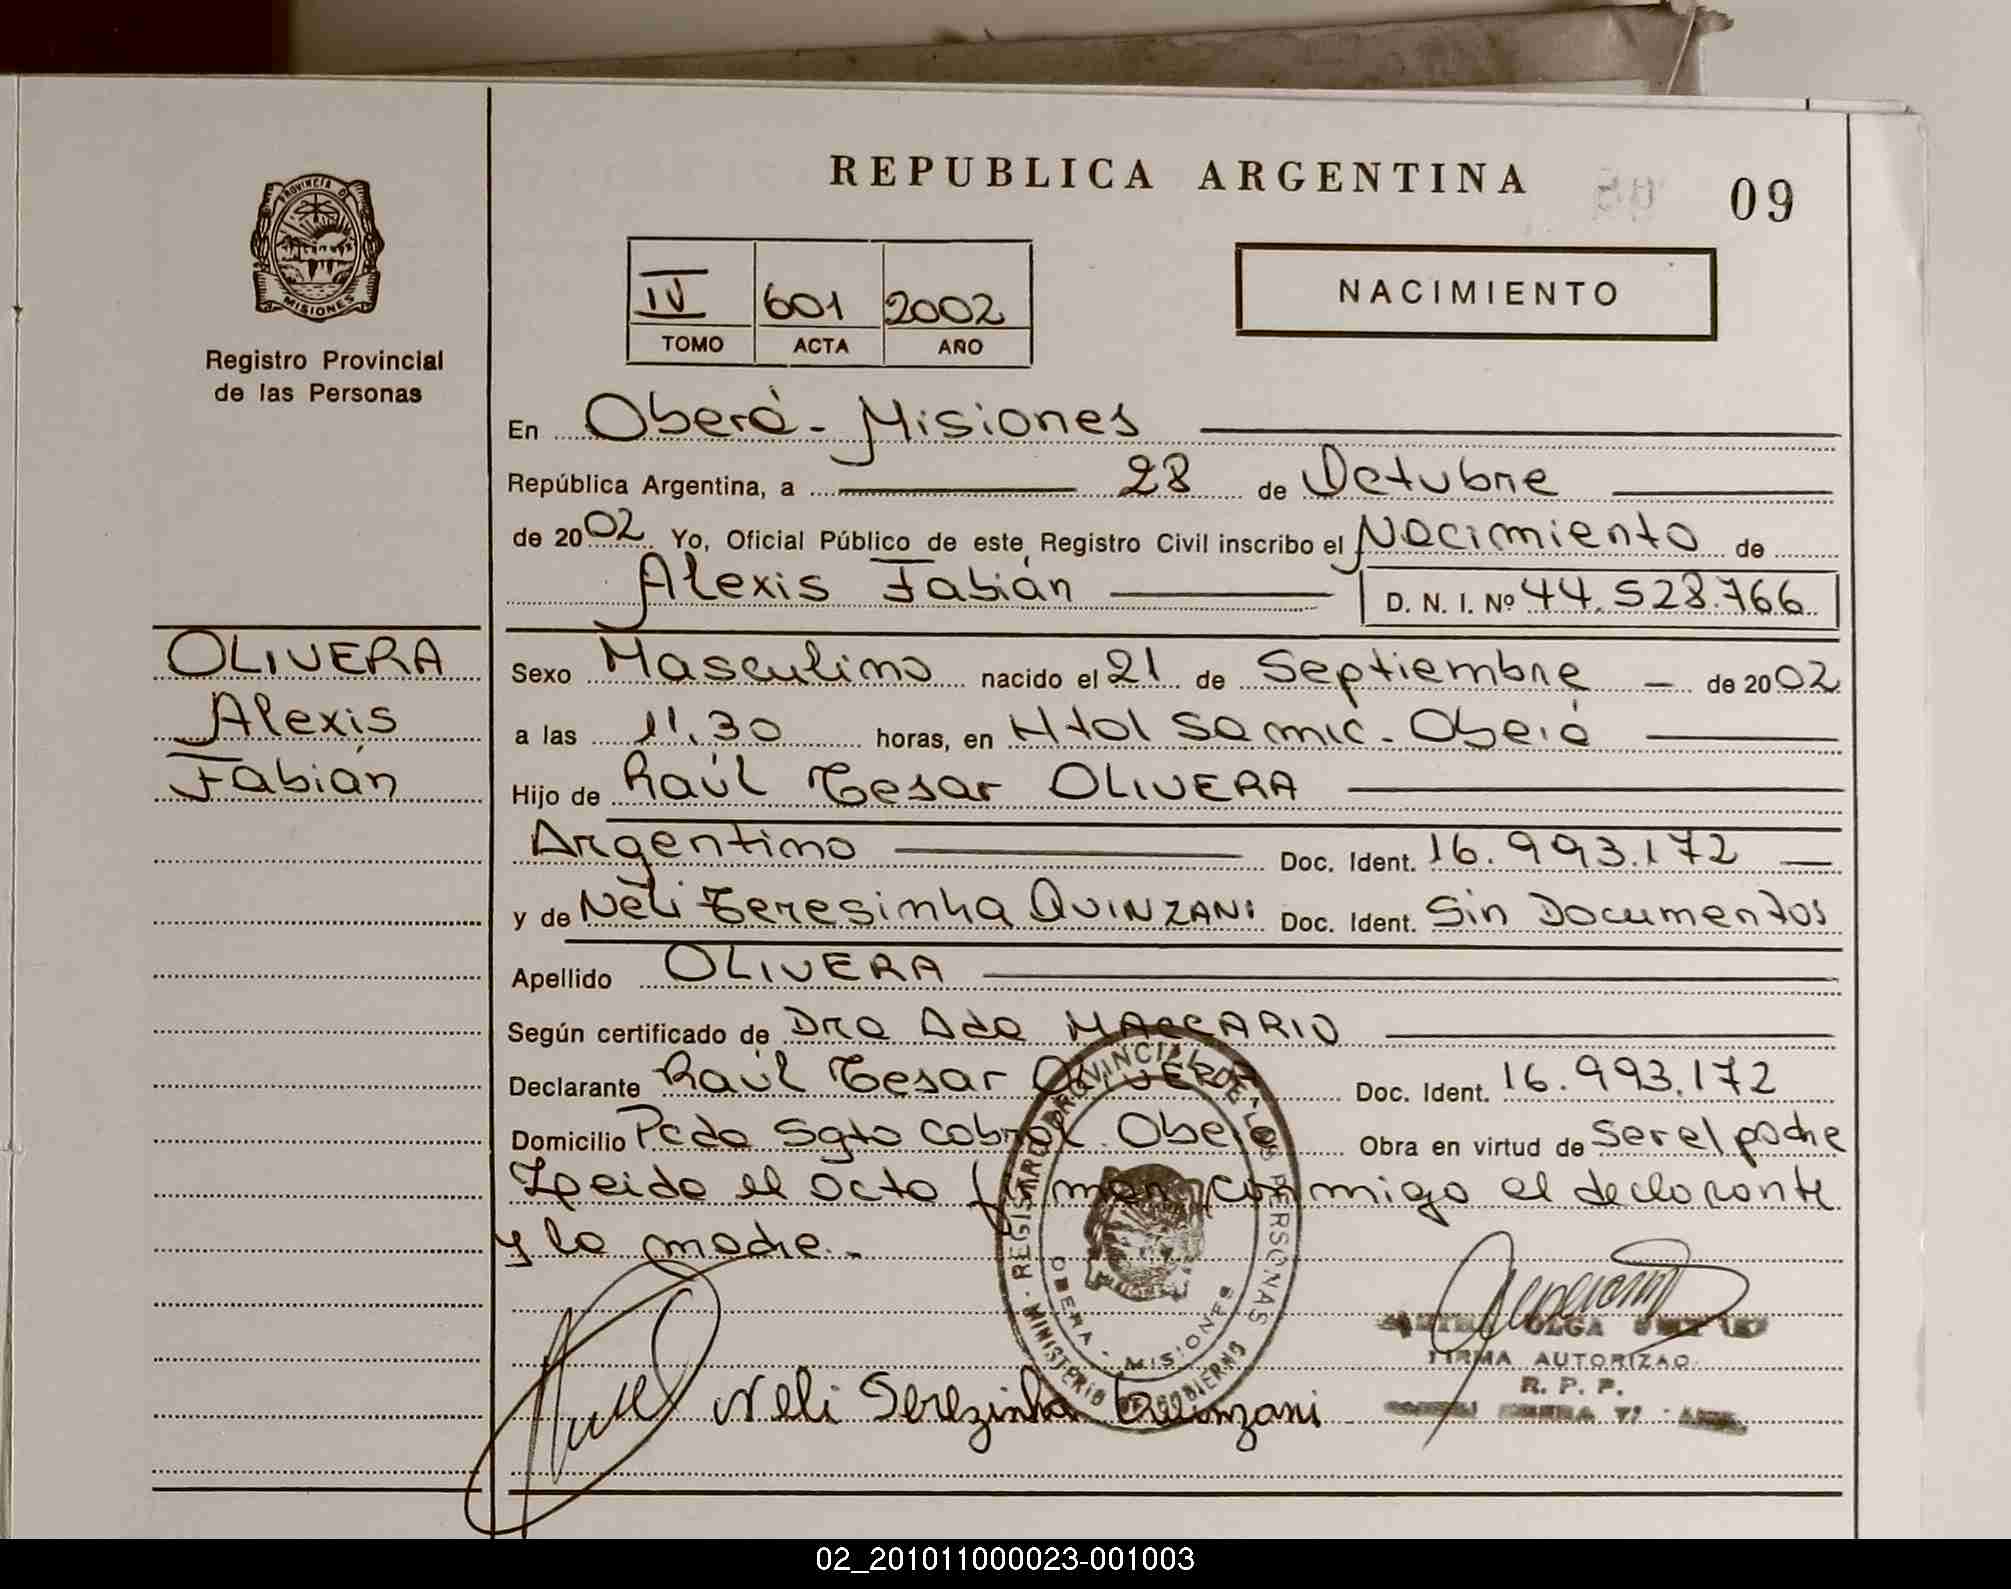 REPUBLICA ARGENTINA
09
PROVINCIA D
MISIONES
Registro Provincial
de las Personas
IV 601 2002
TOMO ACTA AÑO
NACIMIENTO
En Oberá - Misiones
República Argentina, a 28 de Octubre
de 2002 Yo, Oficial Público de este Registro Civil inscribo el Nacimiento de
Alexis Fabián D. N. I. Nº 44.528.766
OLIVERA
Alexis
Fabián
Sexo Masculino nacido el 21 de Septiembre de 2002
a las 11,30 horas, en Htal Samic - Oberá
Hijo de Raúl Cesar OLIVERA
Argentino Doc. Ident. 16.993.172
y de Neli Teresinha QUINZANI Doc. Ident. Sin Documentos
Apellido OLIVERA
Según certificado de Dra Ada MACCARIO
Declarante Raúl Cesar OLIVERA Doc. Ident. 16.993.172
Domicilio Pcda Sgto Cabral. Oberá Obra en virtud de ser el padre
Leida el acta firman conmigo el declarante
y la madre.-
REGISTRO PROVINCIAL DE LAS PERSONAS
MINISTERIO DE GOBIERNO
OBERA - MISIONES
OLGA
FIRMA AUTORIZAD
R. P. P.
Neli Terezinha Quinzani
02_201011000023-001003